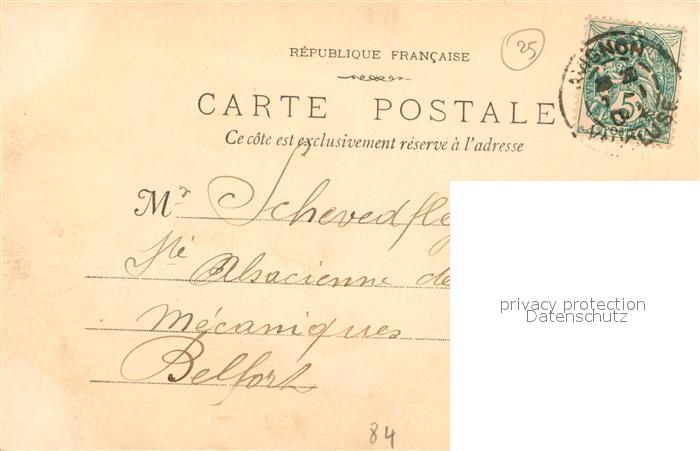 25
RÉPUBLIQUE FRANÇAISE
CARTE POSTALE
Ce côté est exclusivement réservé à l'adresse
AVIGNON
5
VAUCLUSE
Mr
Sté Alsacienne de
Mécaniques
Belfort
privacy protection
Datenschutz
84